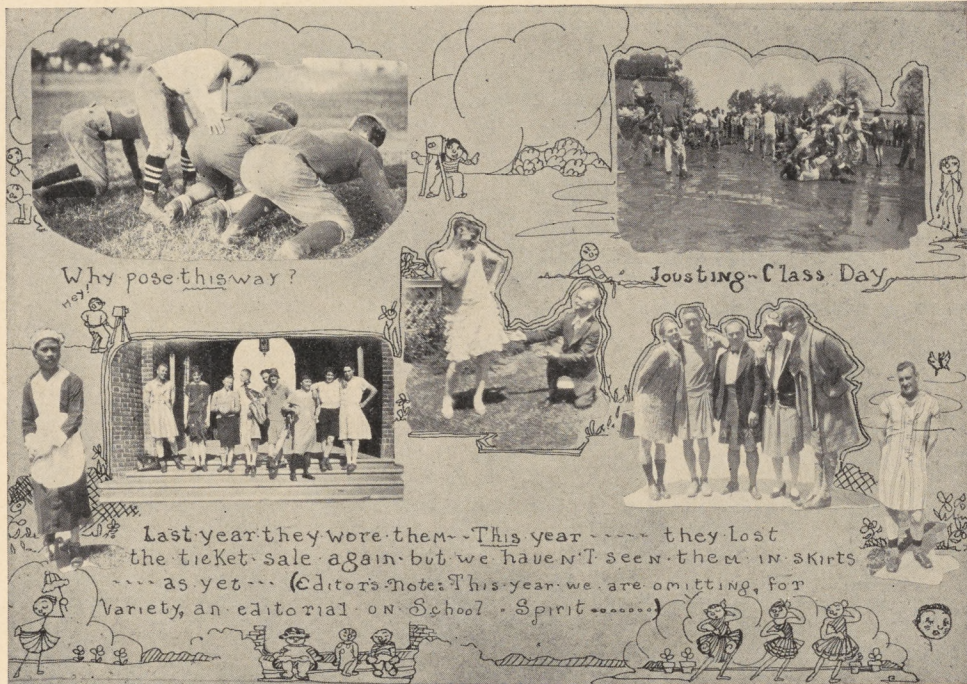 Why pose this way?
Jousting - Class Day
Hey!
Last year they wore them - - This year - - - - - they lost
the ticket sale again - but we haven't seen them in skirts
- - - - as yet - - - (Editor's note: This year we are omitting, for
variety, an editorial on School Spirit - - - - - - -)